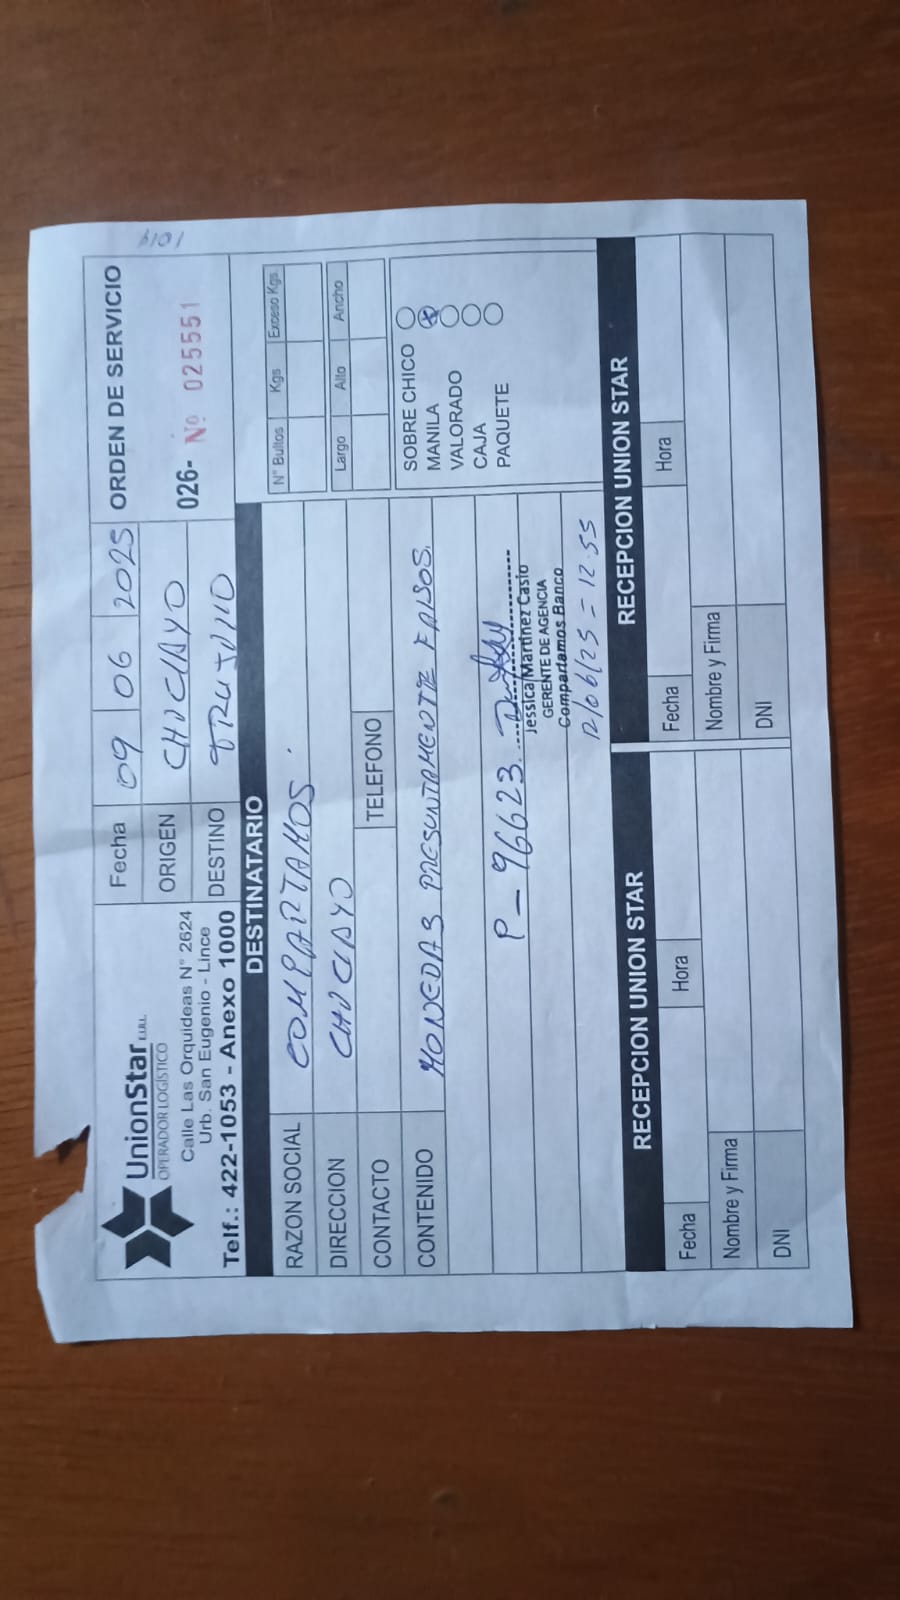 UnionStar E.I.R.L.
OPERADOR LOGÍSTICO
Calle Las Orquideas N° 2624
Urb. San Eugenio - Lince
Telf.: 422-1053 - Anexo 1000
Fecha 09 06 2025
ORIGEN CHICLAYO
DESTINO TRUJILLO
ORDEN DE SERVICIO
026- Nº 025551
DESTINATARIO
RAZON SOCIAL COMPARTAMOS.
DIRECCION CHICLAYO
CONTACTO TELEFONO
CONTENIDO MONEDAS PRESUNTAMENTE FALSOS.
P-96623.
Jessica Martínez Casio
GERENTE DE AGENCIA
Compartamos Banco
12/06/25 = 12:55
N° Bultos Kgs Exceso Kgs
Largo Alto Ancho
SOBRE CHICO
MANILA
VALORADO
CAJA
PAQUETE
RECEPCION UNION STAR
Fecha Hora
Nombre y Firma
DNI
RECEPCION UNION STAR
Fecha Hora
Nombre y Firma
DNI